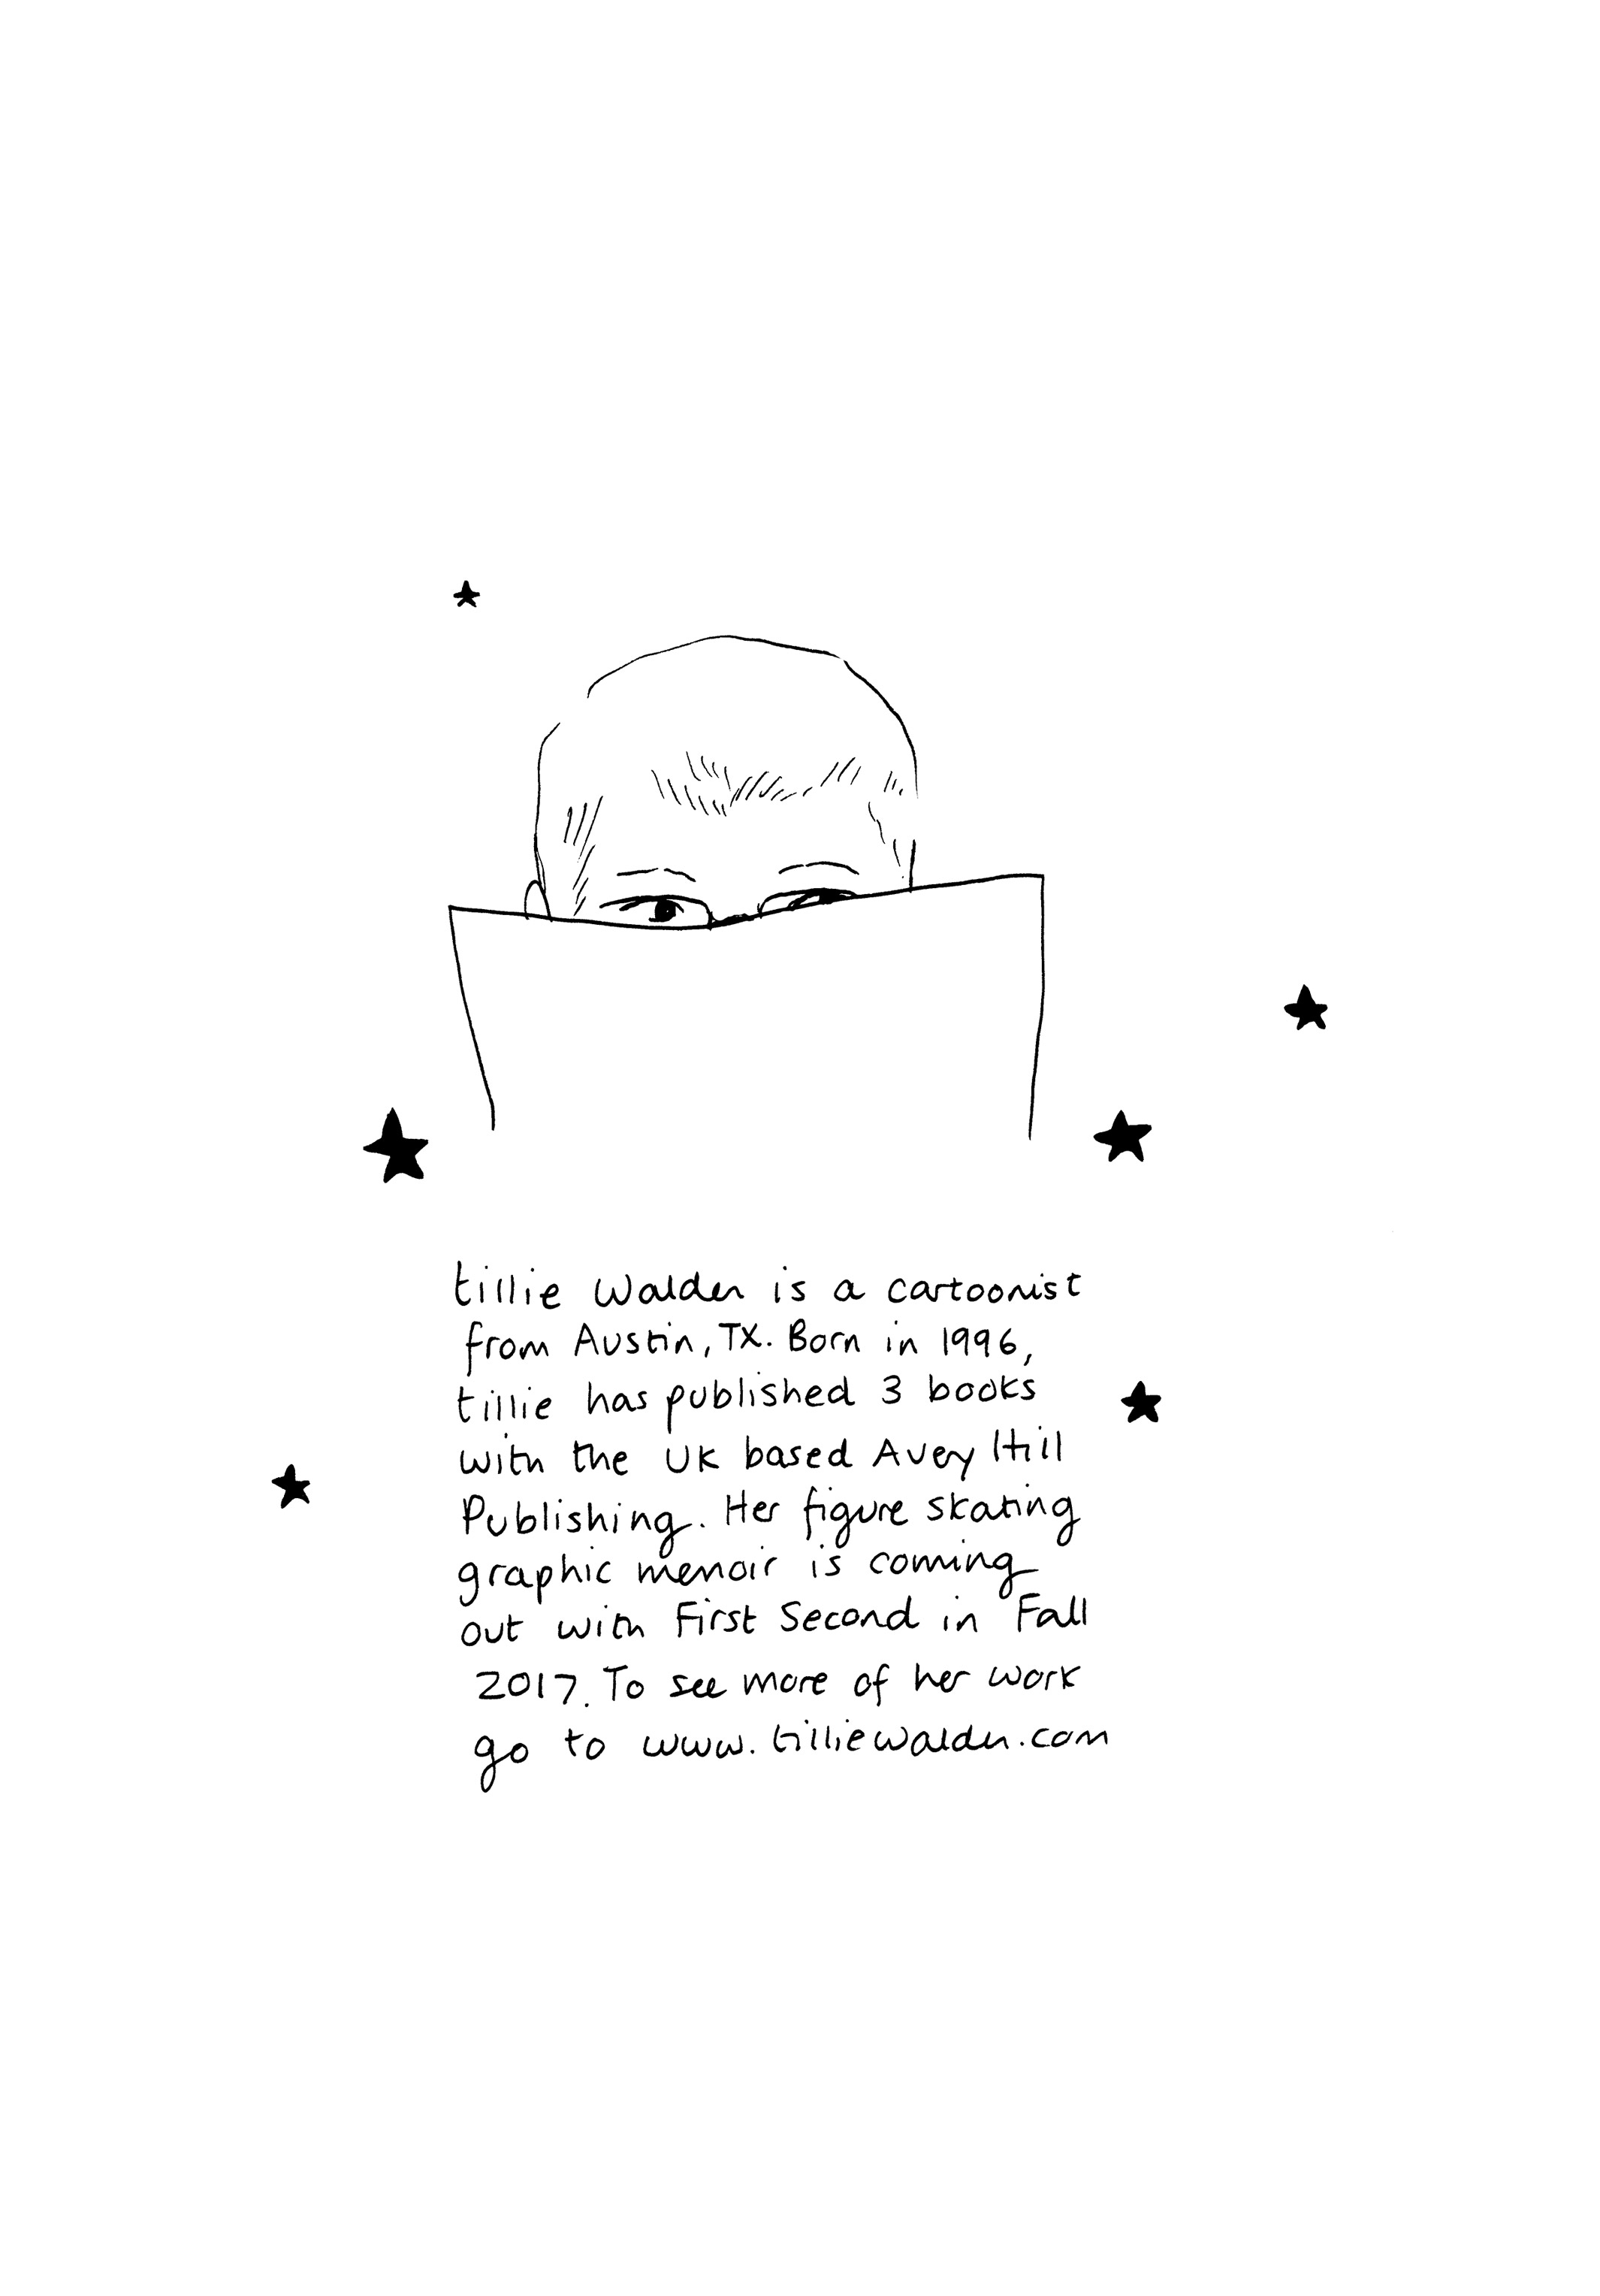 tillie Walden is a cartoonist
from Austin, TX. Born in 1996,
tillie has published 3 books
with the UK based Avery Hill
Publishing. Her figure skating
graphic memoir is coming
out with First Second in Fall
2017. To see more of her work
go to www.tilliewalden.com